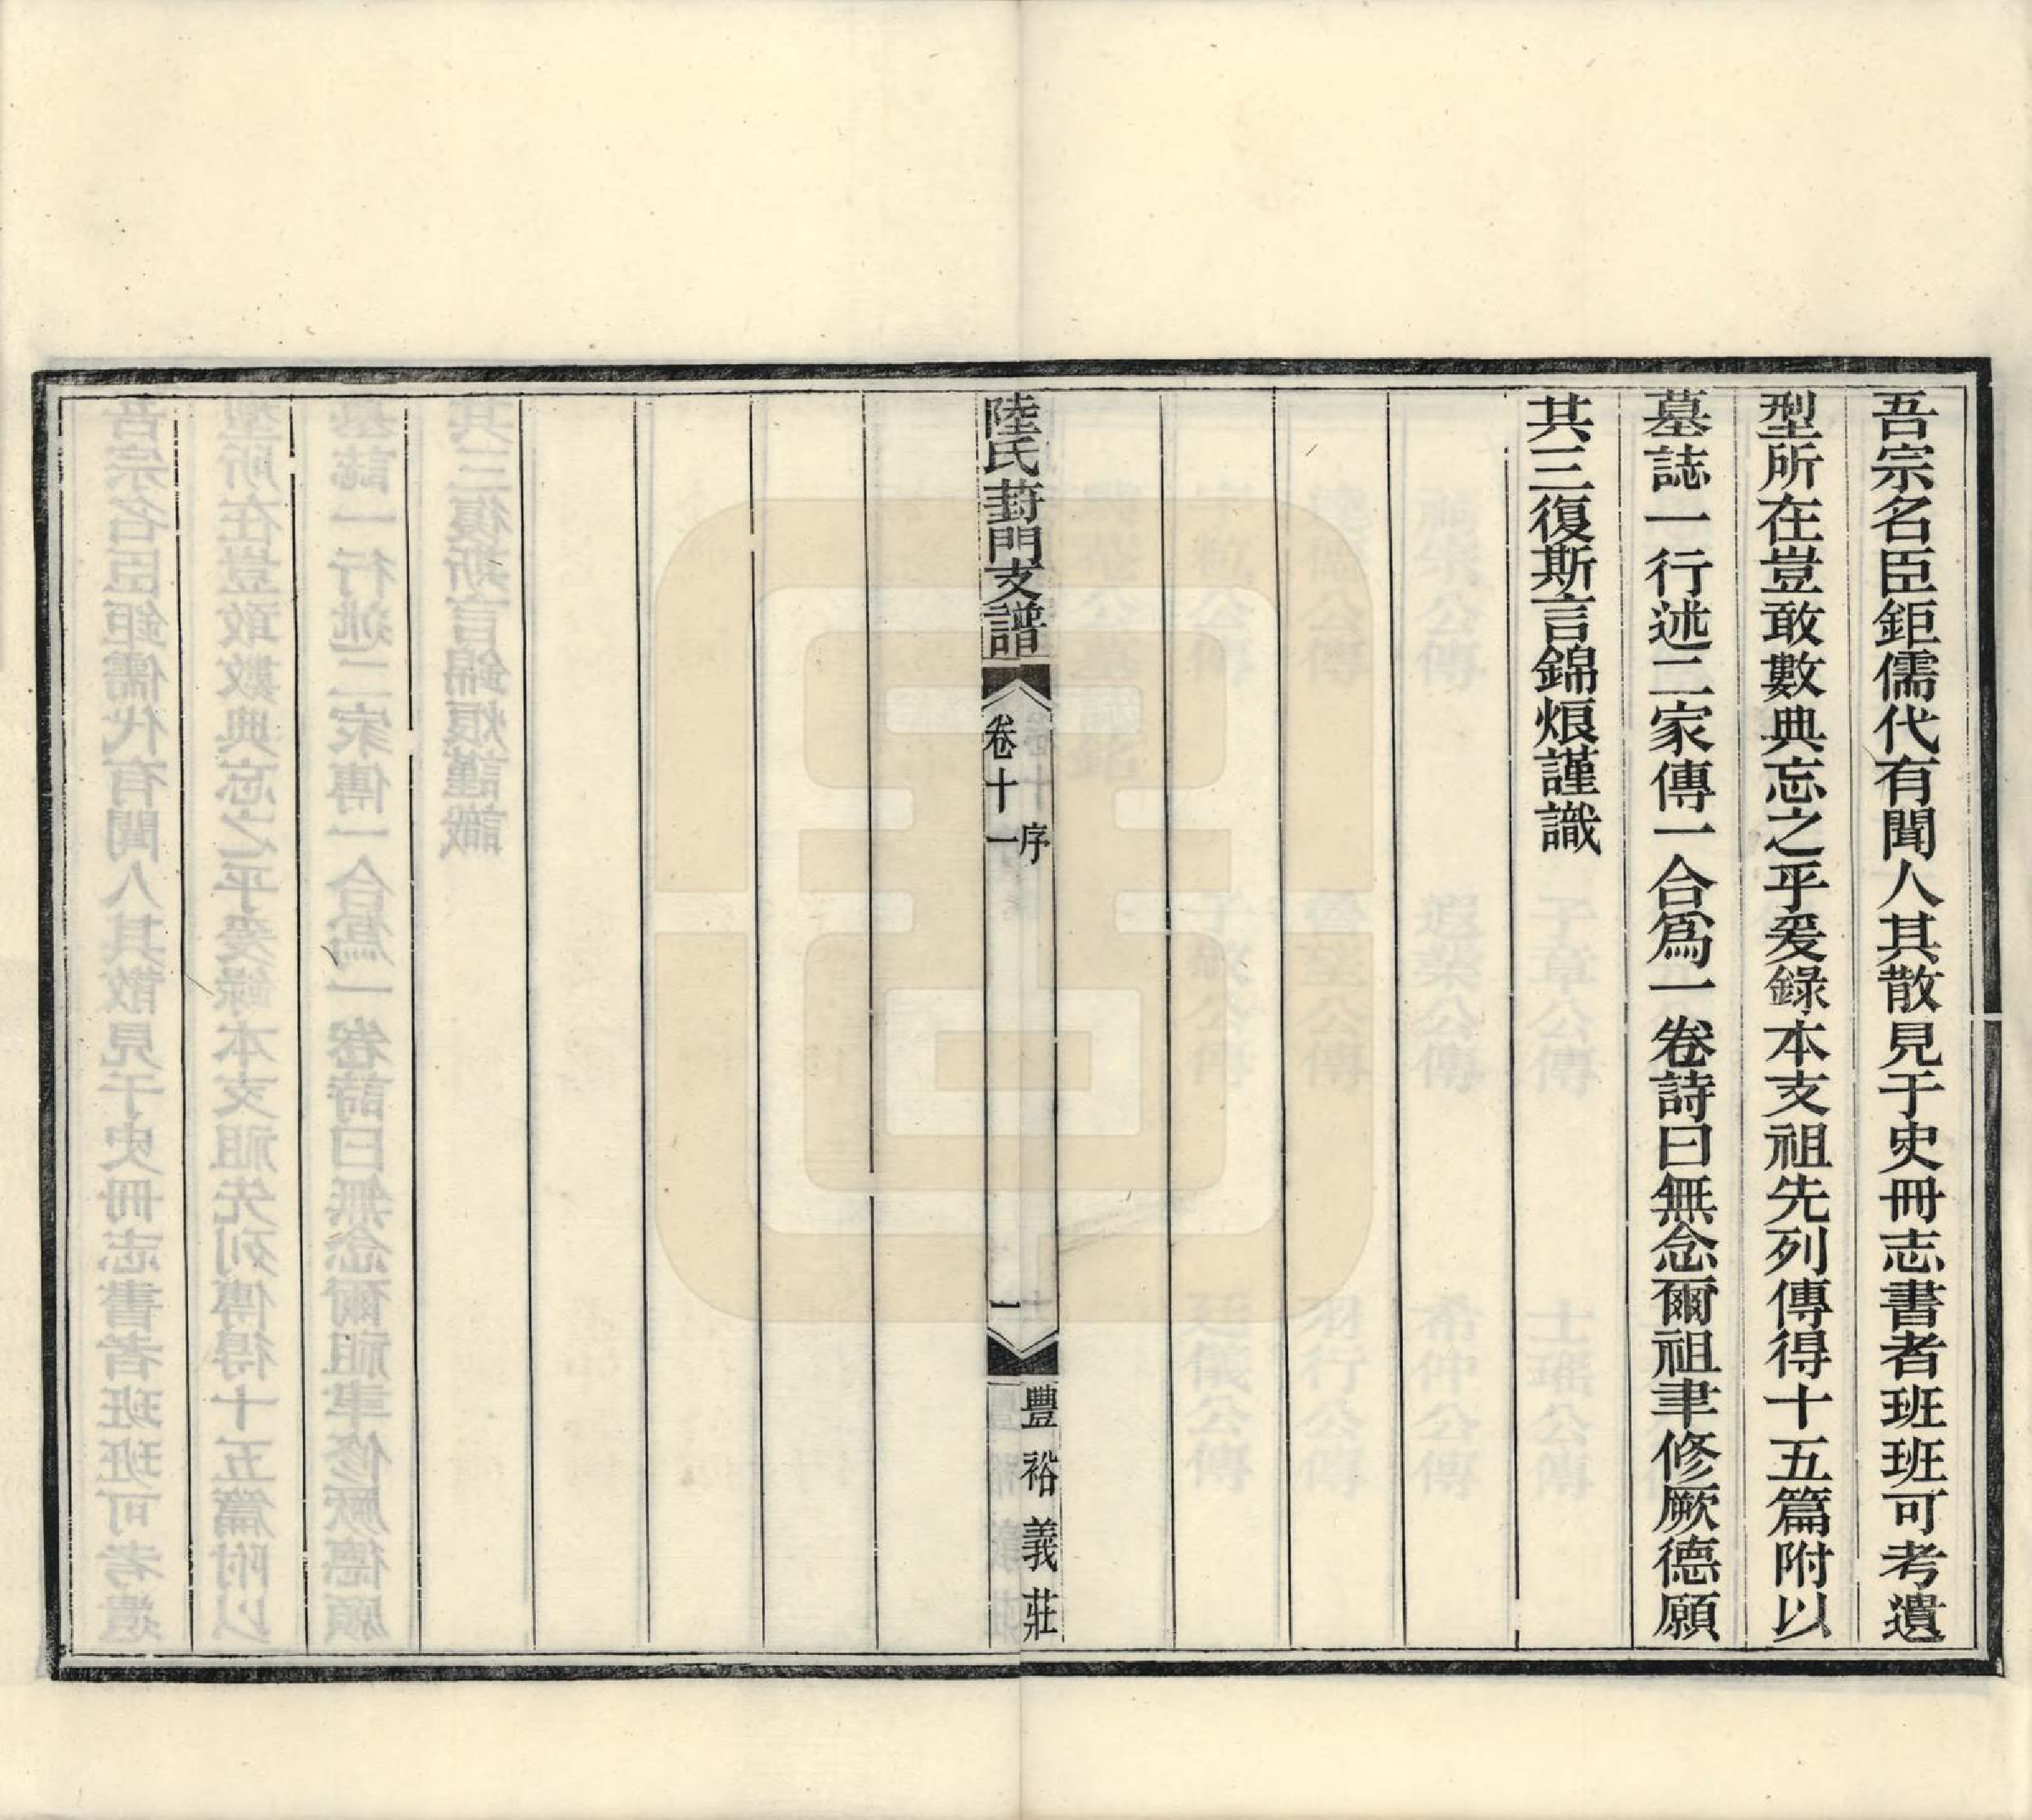 吾宗名臣鉅儒代有聞人其散見于史冊志書者班班可考遺
型所在豈敢數典忘之乎爰錄本支祖先列傳得十五篇附以
墓誌一行述二家傳一合爲一卷詩曰無念爾祖聿修厥德願
其三復斯言錦烺謹識
陸氏葑門支譜
卷十一
序
一
豐裕義莊